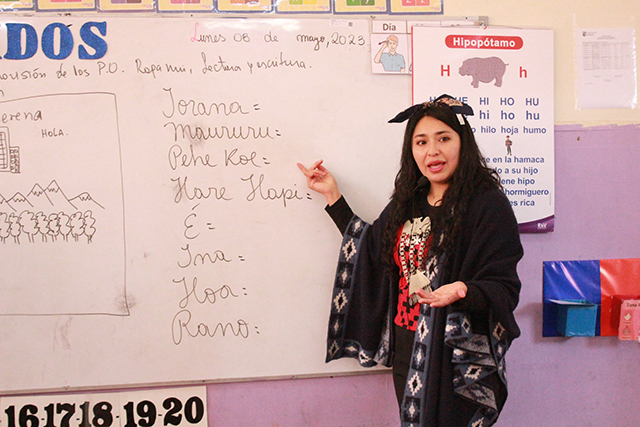 ADOS
Lunes 08 de mayo, 2023
revisión de los P.O. Rapa nui, lectura y escritura.
erena
HOLA.
Iorana =
Maururu =
Pehe Koe =
Hare Hapi =
É =
Ina =
Hoa =
Rano =
Día
Hipopótamo
H h
HE HI HO HU
hi ho hu
hilo hoja humo
en la hamaca
a su hijo
tiene hipo
hormiguero
es rica
16 17 18 19 20